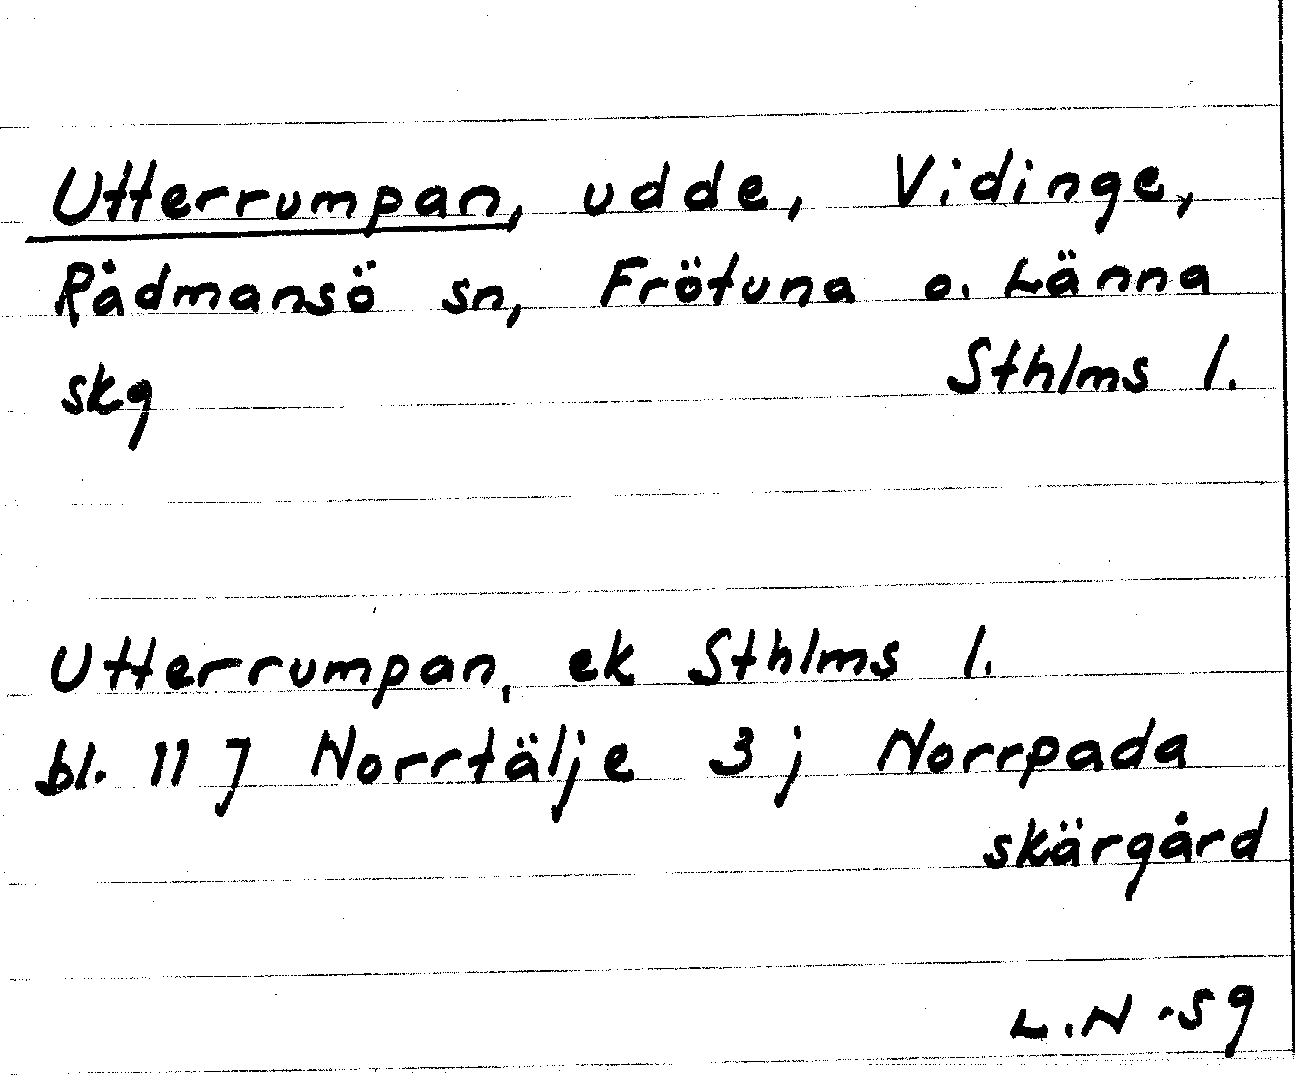 Utterrumpan, udde, Vidinge,
Rådmansö sn, Frötuna o. Länna
skg Sthlms l.
Utterrumpan, ek Sthlms l.
bl. 11 J Norrtälje 3 j Norrpada
skärgård
L.N -59